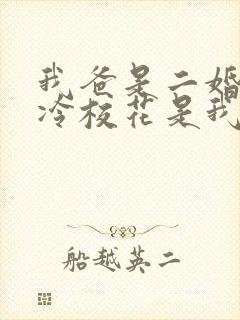 我爸是二婚
冷校花是我
船越英二